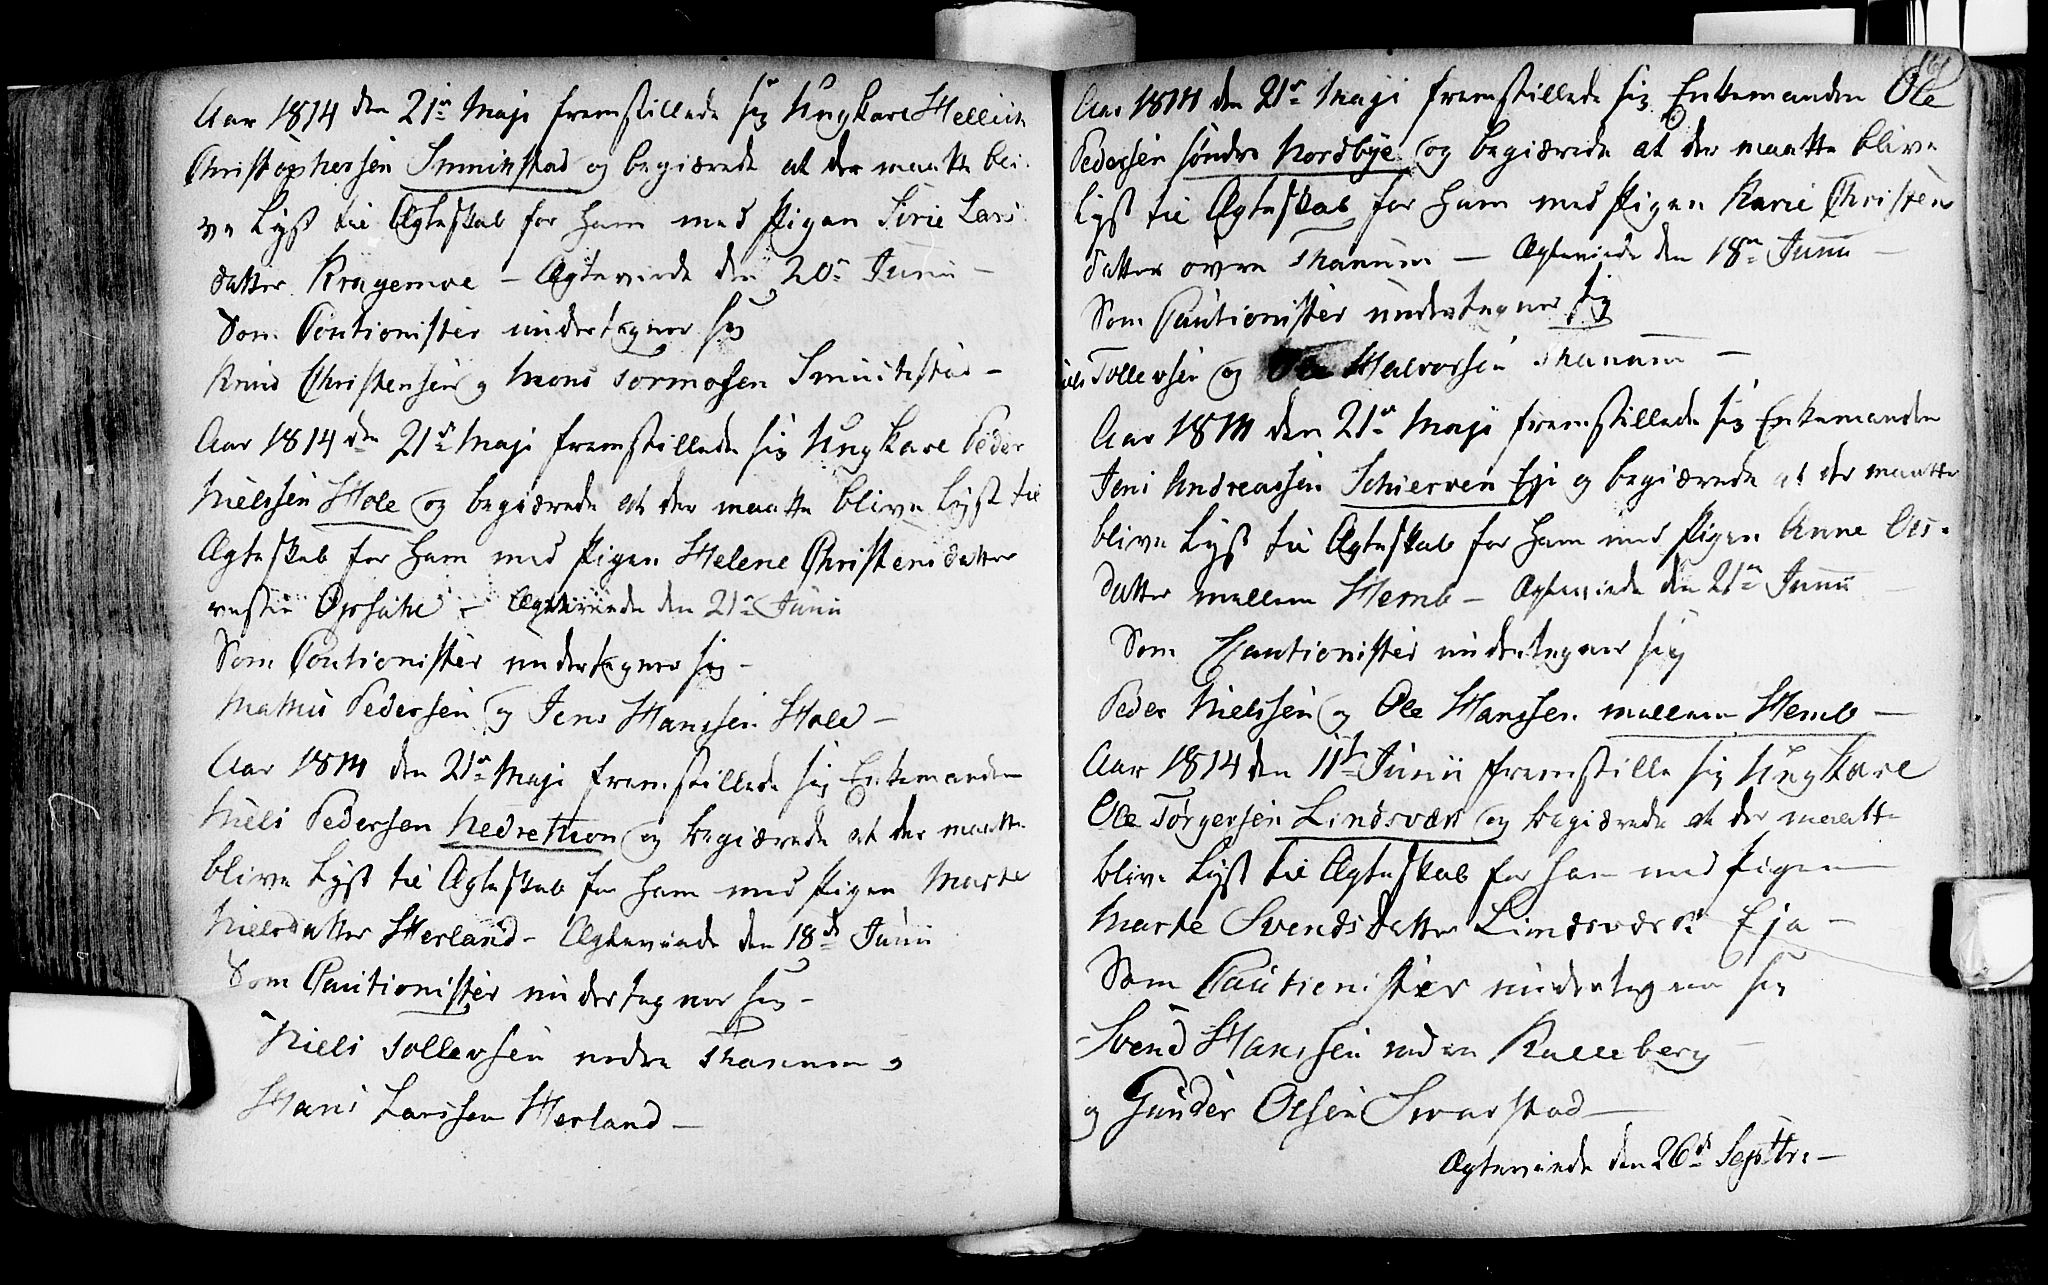 Aar 1814 den 21de Maji fremstillede sig Ungkarl Hellich
Christophersen Smukstad og begiærede at der maatte bli-
ve Lyst til Ægteskab for ham med Pigen Sirie Lars
datter Kragemoe - Ægteviede den 20de Junii -
Som Cautionister undertegner sig
Knud Christensen og Mons Tormosen Smukstad -
Aar 1814 den 21de Maji fremstillede sig Ungkarl Peder
Nielssen Hole og begiærede at der maatte blive Lyst til
Ægteskab for ham med Pigen Helene Christensdatter
vestre - Ægteviede den 21de Junii
Som Cautionister undertegner sig -
Mathis Pedersen og Jens Hanssen Hole -
Aar 1814 den 21de Maji fremstillede sig Enkemanden
Niels Pedersen Nedre Moen og begiærede at der maatte
blive Lyst til Ægteskab for ham med Pigen Marte
Nielsdatter Herland - Ægteviede den 18de Junii
Som Cautionister undertegner sig -
Niels Tollevsen nedre Thanum og
Hans Larssen Herland -
161
Aar 1814 den 21de Maji fremstillede sig Enkemanden Ole
Pedersen søndre Nordbye og begiærede at der maatte blive
Lyst til Ægteskab for ham med Pigen Karie Christens
datter øvre Thanum - Ægteviede den 18de Junii -
Som Cautionister undertegner sig
Niels Tollevsen og Ole Halvorsen Thanum -
Aar 1814 den 21de Maji fremstillede sig Enkemanden
Jens Andreassen Schierven Eje og begiærede at der maatte
blive Lyst til Ægteskab for ham med Pigen Anne Ols-
datter mellem Hemb - Ægteviede den 21de Junii -
Som Cautionister undertegner sig
Peder Nielssen og Ole Hanssen mellem Hemb -
Aar 1814 den 11te Junii fremstille sig Ungkarl
Ole Tørgersen Lindsvær og begiærede at der maatte
blive Lyst til Ægteskab for ham med Pigen
Marte Svendsdatter Lindsværs Eje -
Som Cautionister undertegner sig
Svend Hanssen nedre Kalleberg -
og Gunder Olsen Svarstad -
Ægteviede den 26de Septbr: -